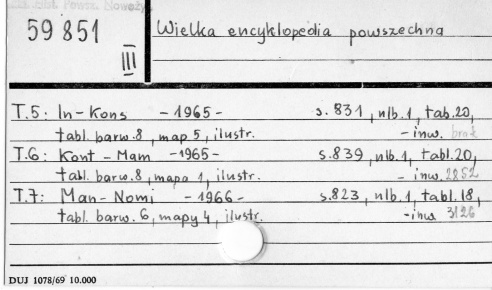 59 851
III
Wielka encyklopedia powszechna
T.5: In-Kons -1965- s. 831, nlb. 1, tab. 20,
tabl. barw. 8, map 5, ilustr. -inw. brak
T.6: Kont-Mam -1965- s. 839, nlb. 1, tabl. 20,
tabl. barw. 8, mapa 1, ilustr. - inw. 2852
T.7: Man-Nomi -1966- s. 823, nlb. 1, tabl. 18,
tabl. barw. 6, mapy 4, ilustr. -inw. 3126
DUJ 1078/69 10.000